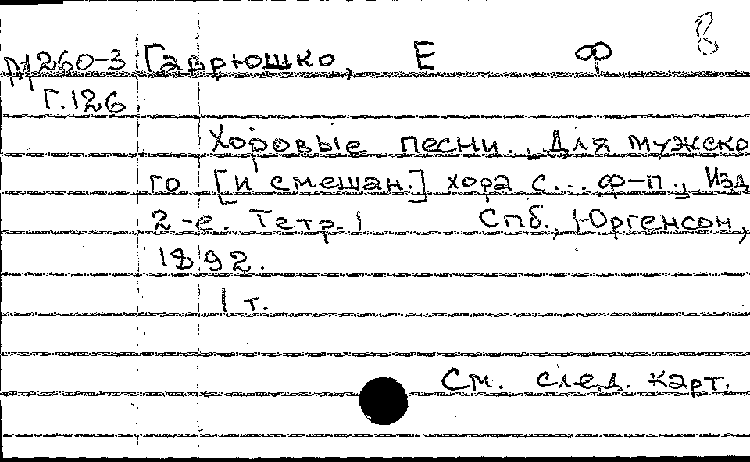 8
М260-3 Гаврюшко, Е Ф
Г.126
Хоровые песни. Для мужско
го [и смешан.] хора с... ф-п., Изд
2-е. Тетр. 1 Спб., Юргенсон,
1892.
1 т.
См. след. карт.